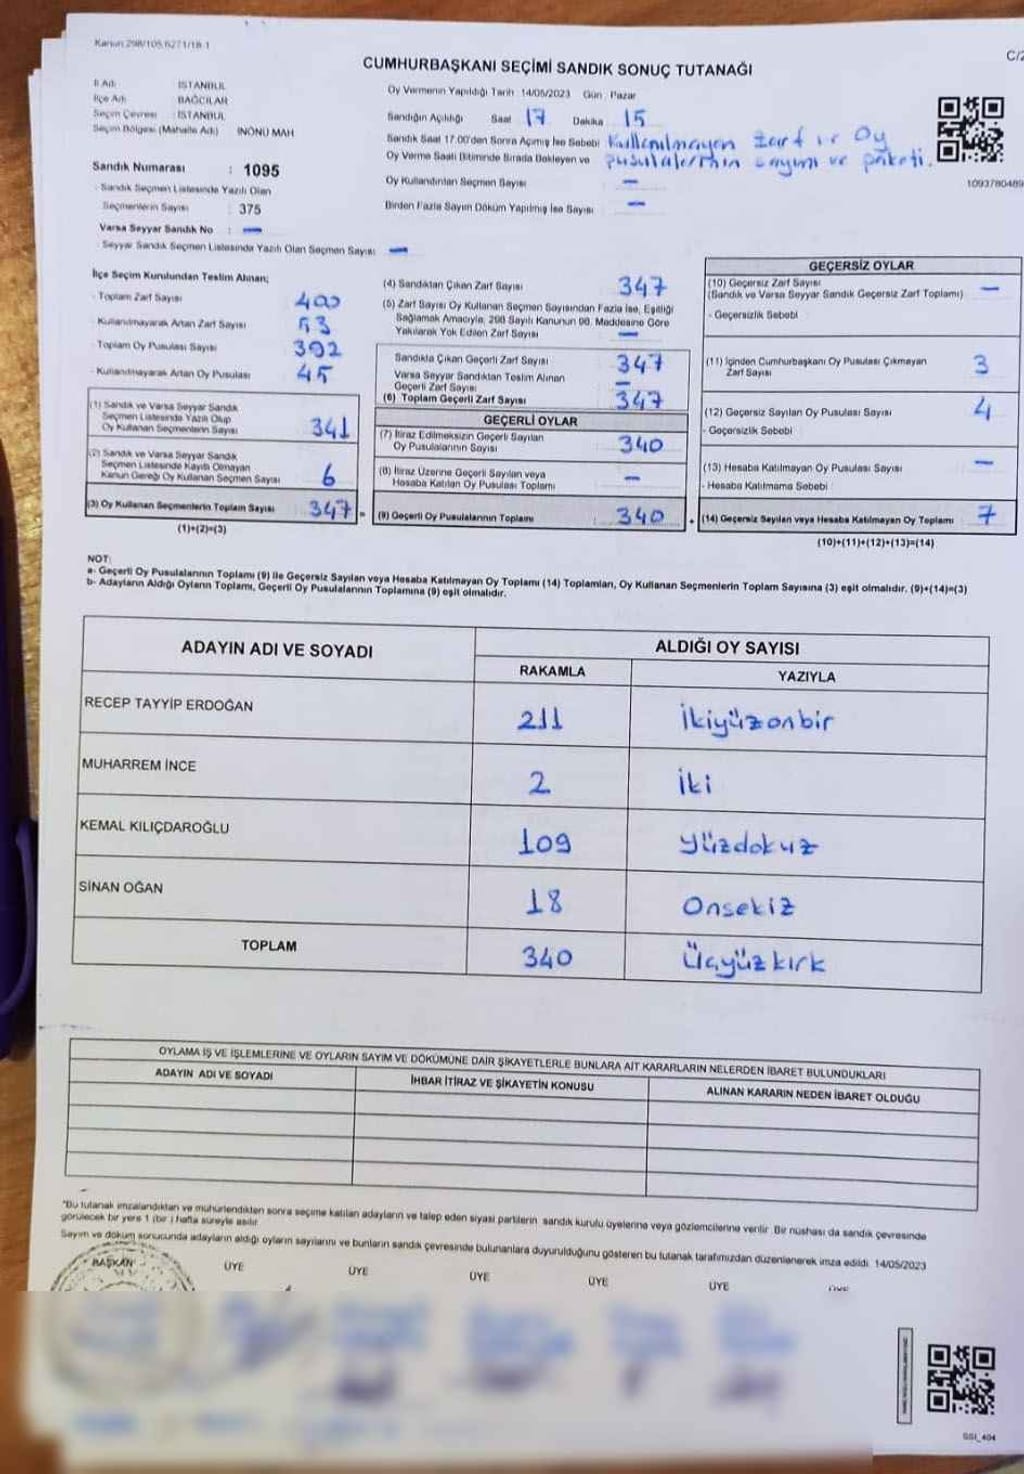 Kanun 298/105,6271/18-1
C/2
CUMHURBAŞKANI SEÇİMİ SANDIK SONUÇ TUTANAĞI
İl Adı : İSTANBUL
İlçe Adı : BAĞCILAR
Seçim Çevresi : İSTANBUL
Seçim Bölgesi (Mahalle Adı) İNÖNÜ MAH
Sandık Numarası : 1095
Sandık Seçmen Listesinde Yazılı Olan
Seçmenlerin Sayısı : 375
Varsa Seyyar Sandık No : —
Seyyar Sandık Seçmen Listesinde Yazılı Olan Seçmen Sayısı —
Oy Vermenin Yapıldığı Tarih 14/05/2023 Gün : Pazar
Sandığın Açıldığı Saat 17 Dakika 15
Sandık Saat 17.00'den Sonra Açılmış İse Sebebi Kullanılmayan zarf ve Oy
pusulalarının sayımı ve paketi.
Oy Verme Saati Bitiminde Sırada Bekleyen ve
Oy Kullandırılan Seçmen Sayısı —
Birden Fazla Sayım Döküm Yapılmış İse Sayısı —
1093780489
İlçe Seçim Kurulundan Teslim Alınan;
- Toplam Zarf Sayısı 400
- Kullanılmayarak Artan Zarf Sayısı 53
- Toplam Oy Pusulası Sayısı 392
- Kullanılmayarak Artan Oy Pusulası 45
(1) Sandık ve Varsa Seyyar Sandık
Seçmen Listesinde Yazılı Olup
Oy Kullanan Seçmenlerin Sayısı 341
(2) Sandık ve Varsa Seyyar Sandık
Seçmen Listesinde Kayıtlı Olmayan
Kanun Gereği Oy Kullanan Seçmen Sayısı 6
(3) Oy Kullanan Seçmenlerin Toplam Sayısı 347
(1)+(2)=(3)
(4) Sandıktan Çıkan Zarf Sayısı 347
(5) Zarf Sayısı Oy Kullanan Seçmen Sayısından Fazla İse, Eşitliği
Sağlamak Amacıyla, 298 Sayılı Kanunun 98. Maddesine Göre
Yakılarak Yok Edilen Zarf Sayısı —
Sandıkta Çıkan Geçerli Zarf Sayısı 347
Varsa Seyyar Sandıktan Teslim Alınan
Geçerli Zarf Sayısı —
(6) Toplam Geçerli Zarf Sayısı 347
GEÇERLİ OYLAR
(7) İtiraz Edilmeksizin Geçerli Sayılan
Oy Pusulalarının Sayısı 340
(8) İtiraz Üzerine Geçerli Sayılan veya
Hesaba Katılan Oy Pusulası Toplamı —
= (9) Geçerli Oy Pusulalarının Toplamı 340
GEÇERSİZ OYLAR
(10) Geçersiz Zarf Sayısı —
(Sandık ve Varsa Seyyar Sandık Geçersiz Zarf Toplamı)
- Geçersizlik Sebebi
(11) İçinden Cumhurbaşkanı Oy Pusulası Çıkmayan
Zarf Sayısı 3
(12) Geçersiz Sayılan Oy Pusulası Sayısı 4
- Geçersizlik Sebebi
(13) Hesaba Katılmayan Oy Pusulası Sayısı —
- Hesaba Katılmama Sebebi
+ (14) Geçersiz Sayılan veya Hesaba Katılmayan Oy Toplamı 7
(10)+(11)+(12)+(13)=(14)
NOT:
a- Geçerli Oy Pusulalarının Toplamı (9) ile Geçersiz Sayılan veya Hesaba Katılmayan Oy Toplamı (14) Toplamları, Oy Kullanan Seçmenlerin Toplam Sayısına (3) eşit olmalıdır. (9)+(14)=(3)
b- Adayların Aldığı Oyların Toplamı, Geçerli Oy Pusulalarının Toplamına (9) eşit olmalıdır.
ADAYIN ADI VE SOYADI
ALDIĞI OY SAYISI
RAKAMLA YAZIYLA
RECEP TAYYİP ERDOĞAN 211 İkiyüzonbir
MUHARREM İNCE 2 İki
KEMAL KILIÇDAROĞLU 109 Yüzdokuz
SİNAN OĞAN 18 Onsekiz
TOPLAM 340 Üçyüzkırk
OYLAMA İŞ VE İŞLEMLERİNE VE OYLARIN SAYIM VE DÖKÜMÜNE DAİR ŞİKAYETLERLE BUNLARA AİT KARARLARIN NELERDEN İBARET BULUNDUKLARI
ADAYIN ADI VE SOYADI İHBAR İTİRAZ VE ŞİKAYETİN KONUSU ALINAN KARARIN NEDEN İBARET OLDUĞU
*Bu tutanak imzalandıktan ve mühürlendikten sonra seçime katılan adayların ve talep eden siyasi partilerin sandık kurulu üyelerine veya gözlemcilerine verilir. Bir nüshası da sandık çevresinde
görülecek bir yere 1 (bir) hafta süreyle asılır.
Sayım ve döküm sonucunda adayların aldığı oyların sayılarını ve bunların sandık çevresinde bulunanlara duyurulduğunu gösteren bu tutanak tarafımızdan düzenlenerek imza edildi. 14/05/2023
BAŞKAN ÜYE ÜYE ÜYE ÜYE ÜYE ÜYE
SSI_404